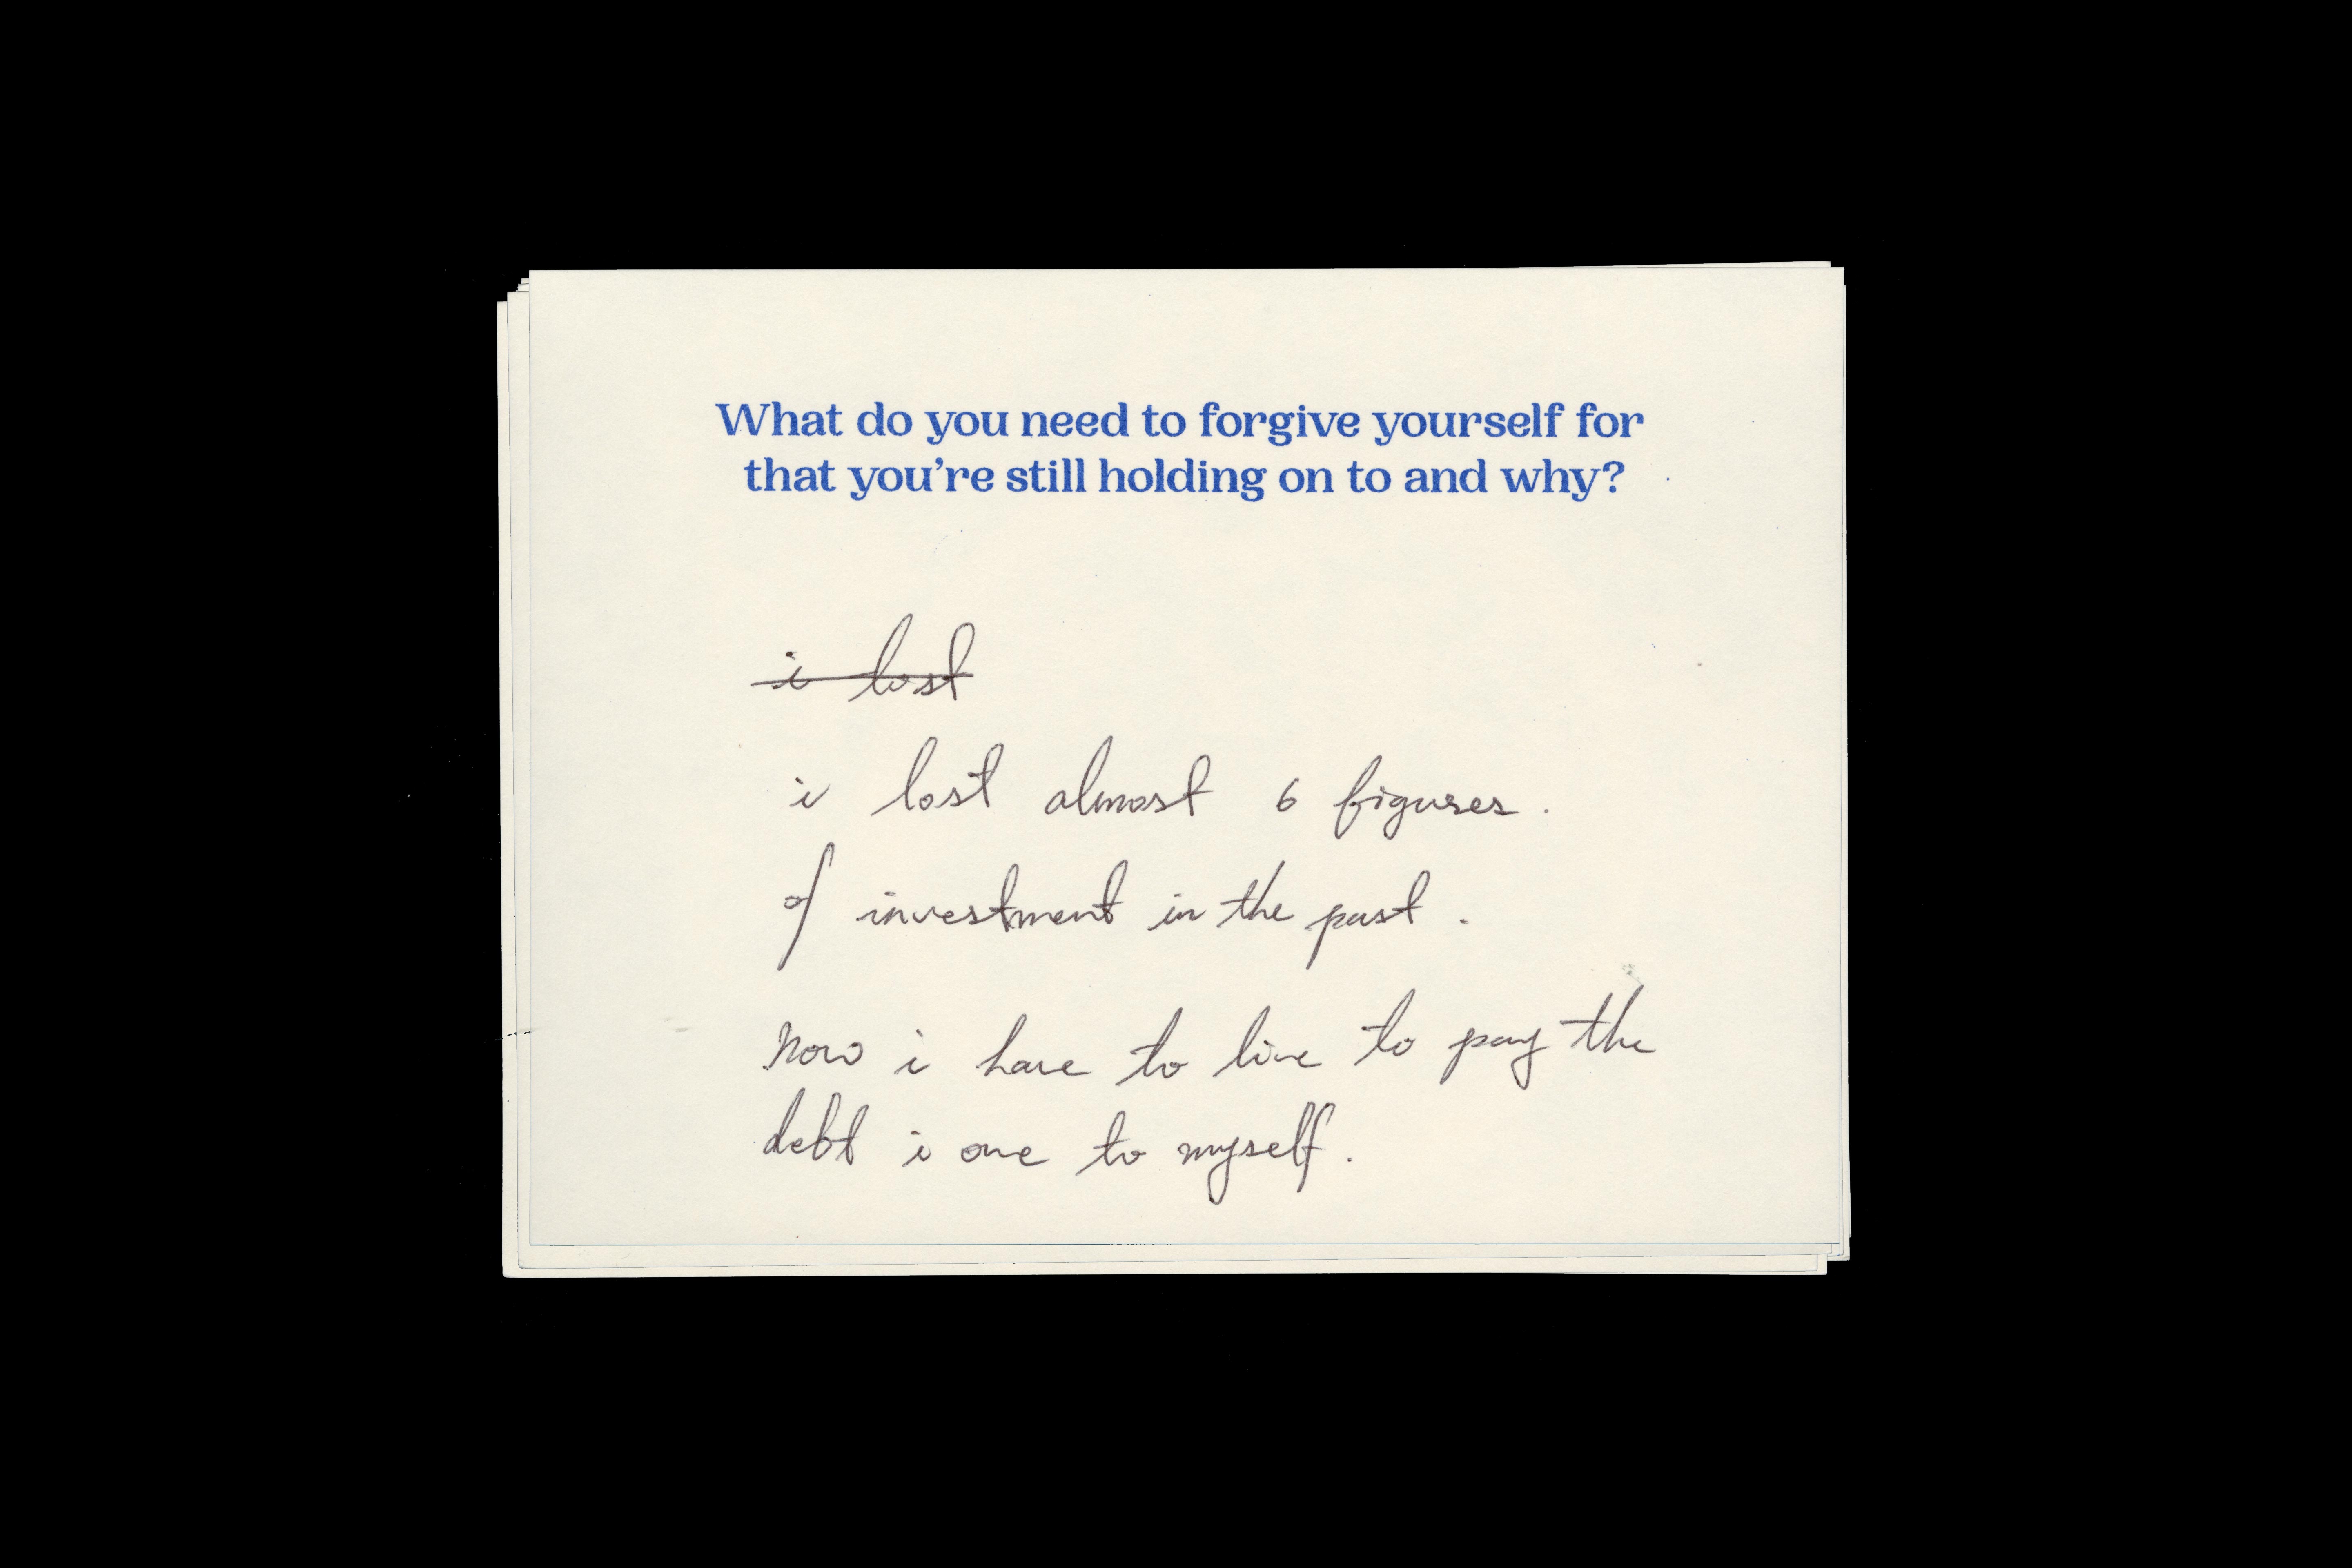 What do you need to forgive yourself for
that you're still holding on to and why?
i lost
i lost almost 6 figures.
of investment in the past.
now i have to live to pay the
debt i owe to myself.